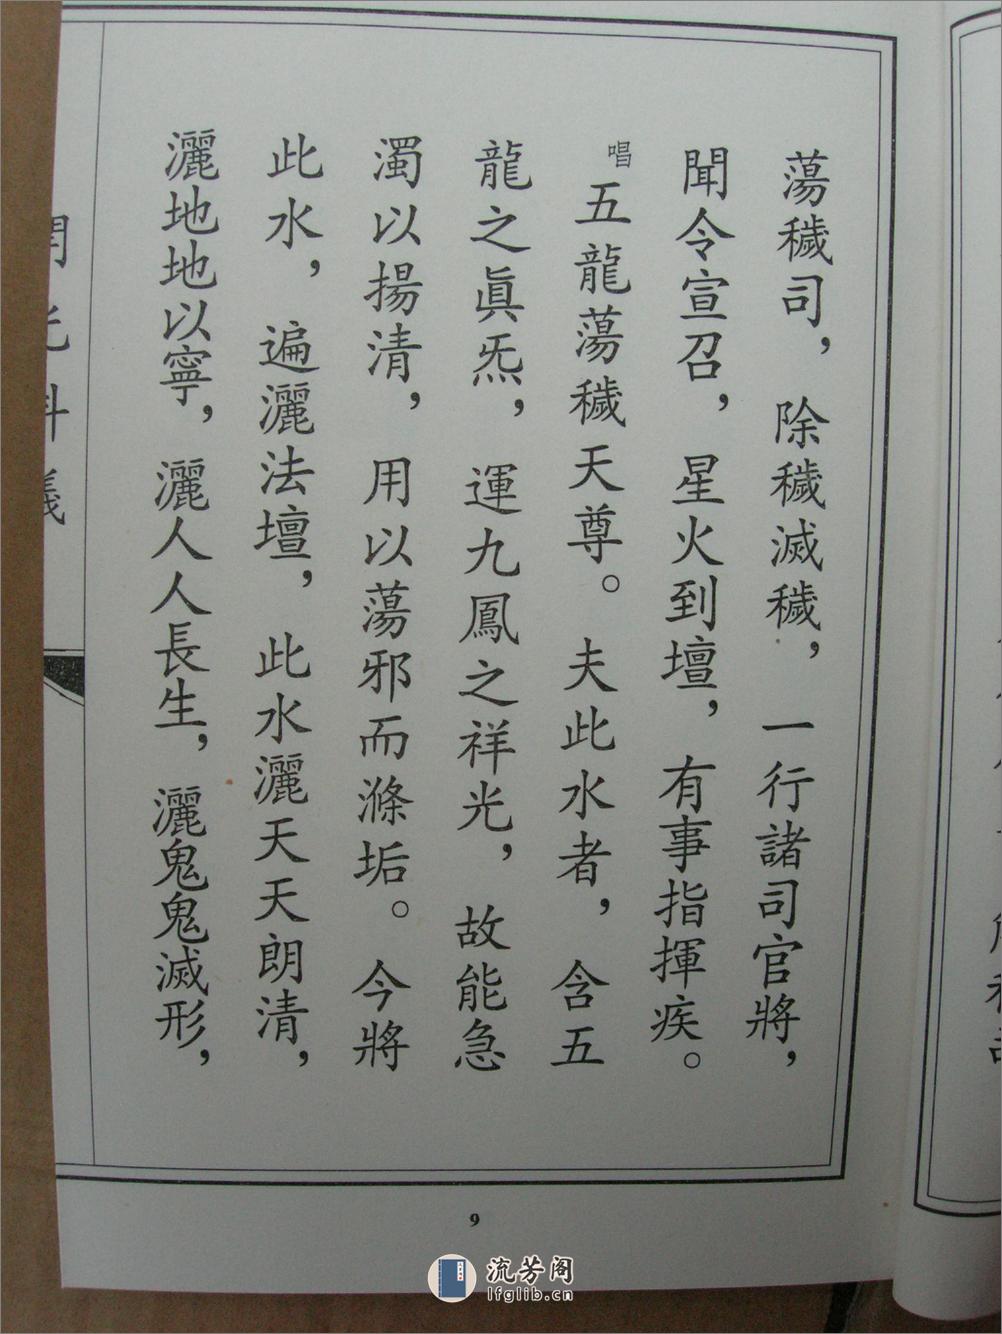 蕩穢司，除穢滅穢，一行諸司官將，
聞令宣召，星火到壇，有事指揮疾。
唱五龍蕩穢天尊。夫此水者，含五
龍之眞炁，運九鳳之祥光，故能急
濁以揚清，用以蕩邪而滌垢。今將
此水，遍灑法壇，此水灑天天朗清，
灑地地以寧，灑人人長生，灑鬼鬼滅形，
科儀
9
流芳阁
lfglib.cn